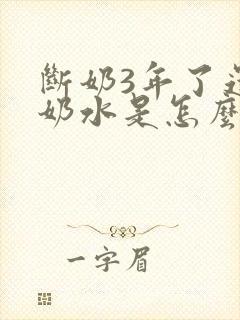 斷奶3年了還
奶水是怎麼
一字眉